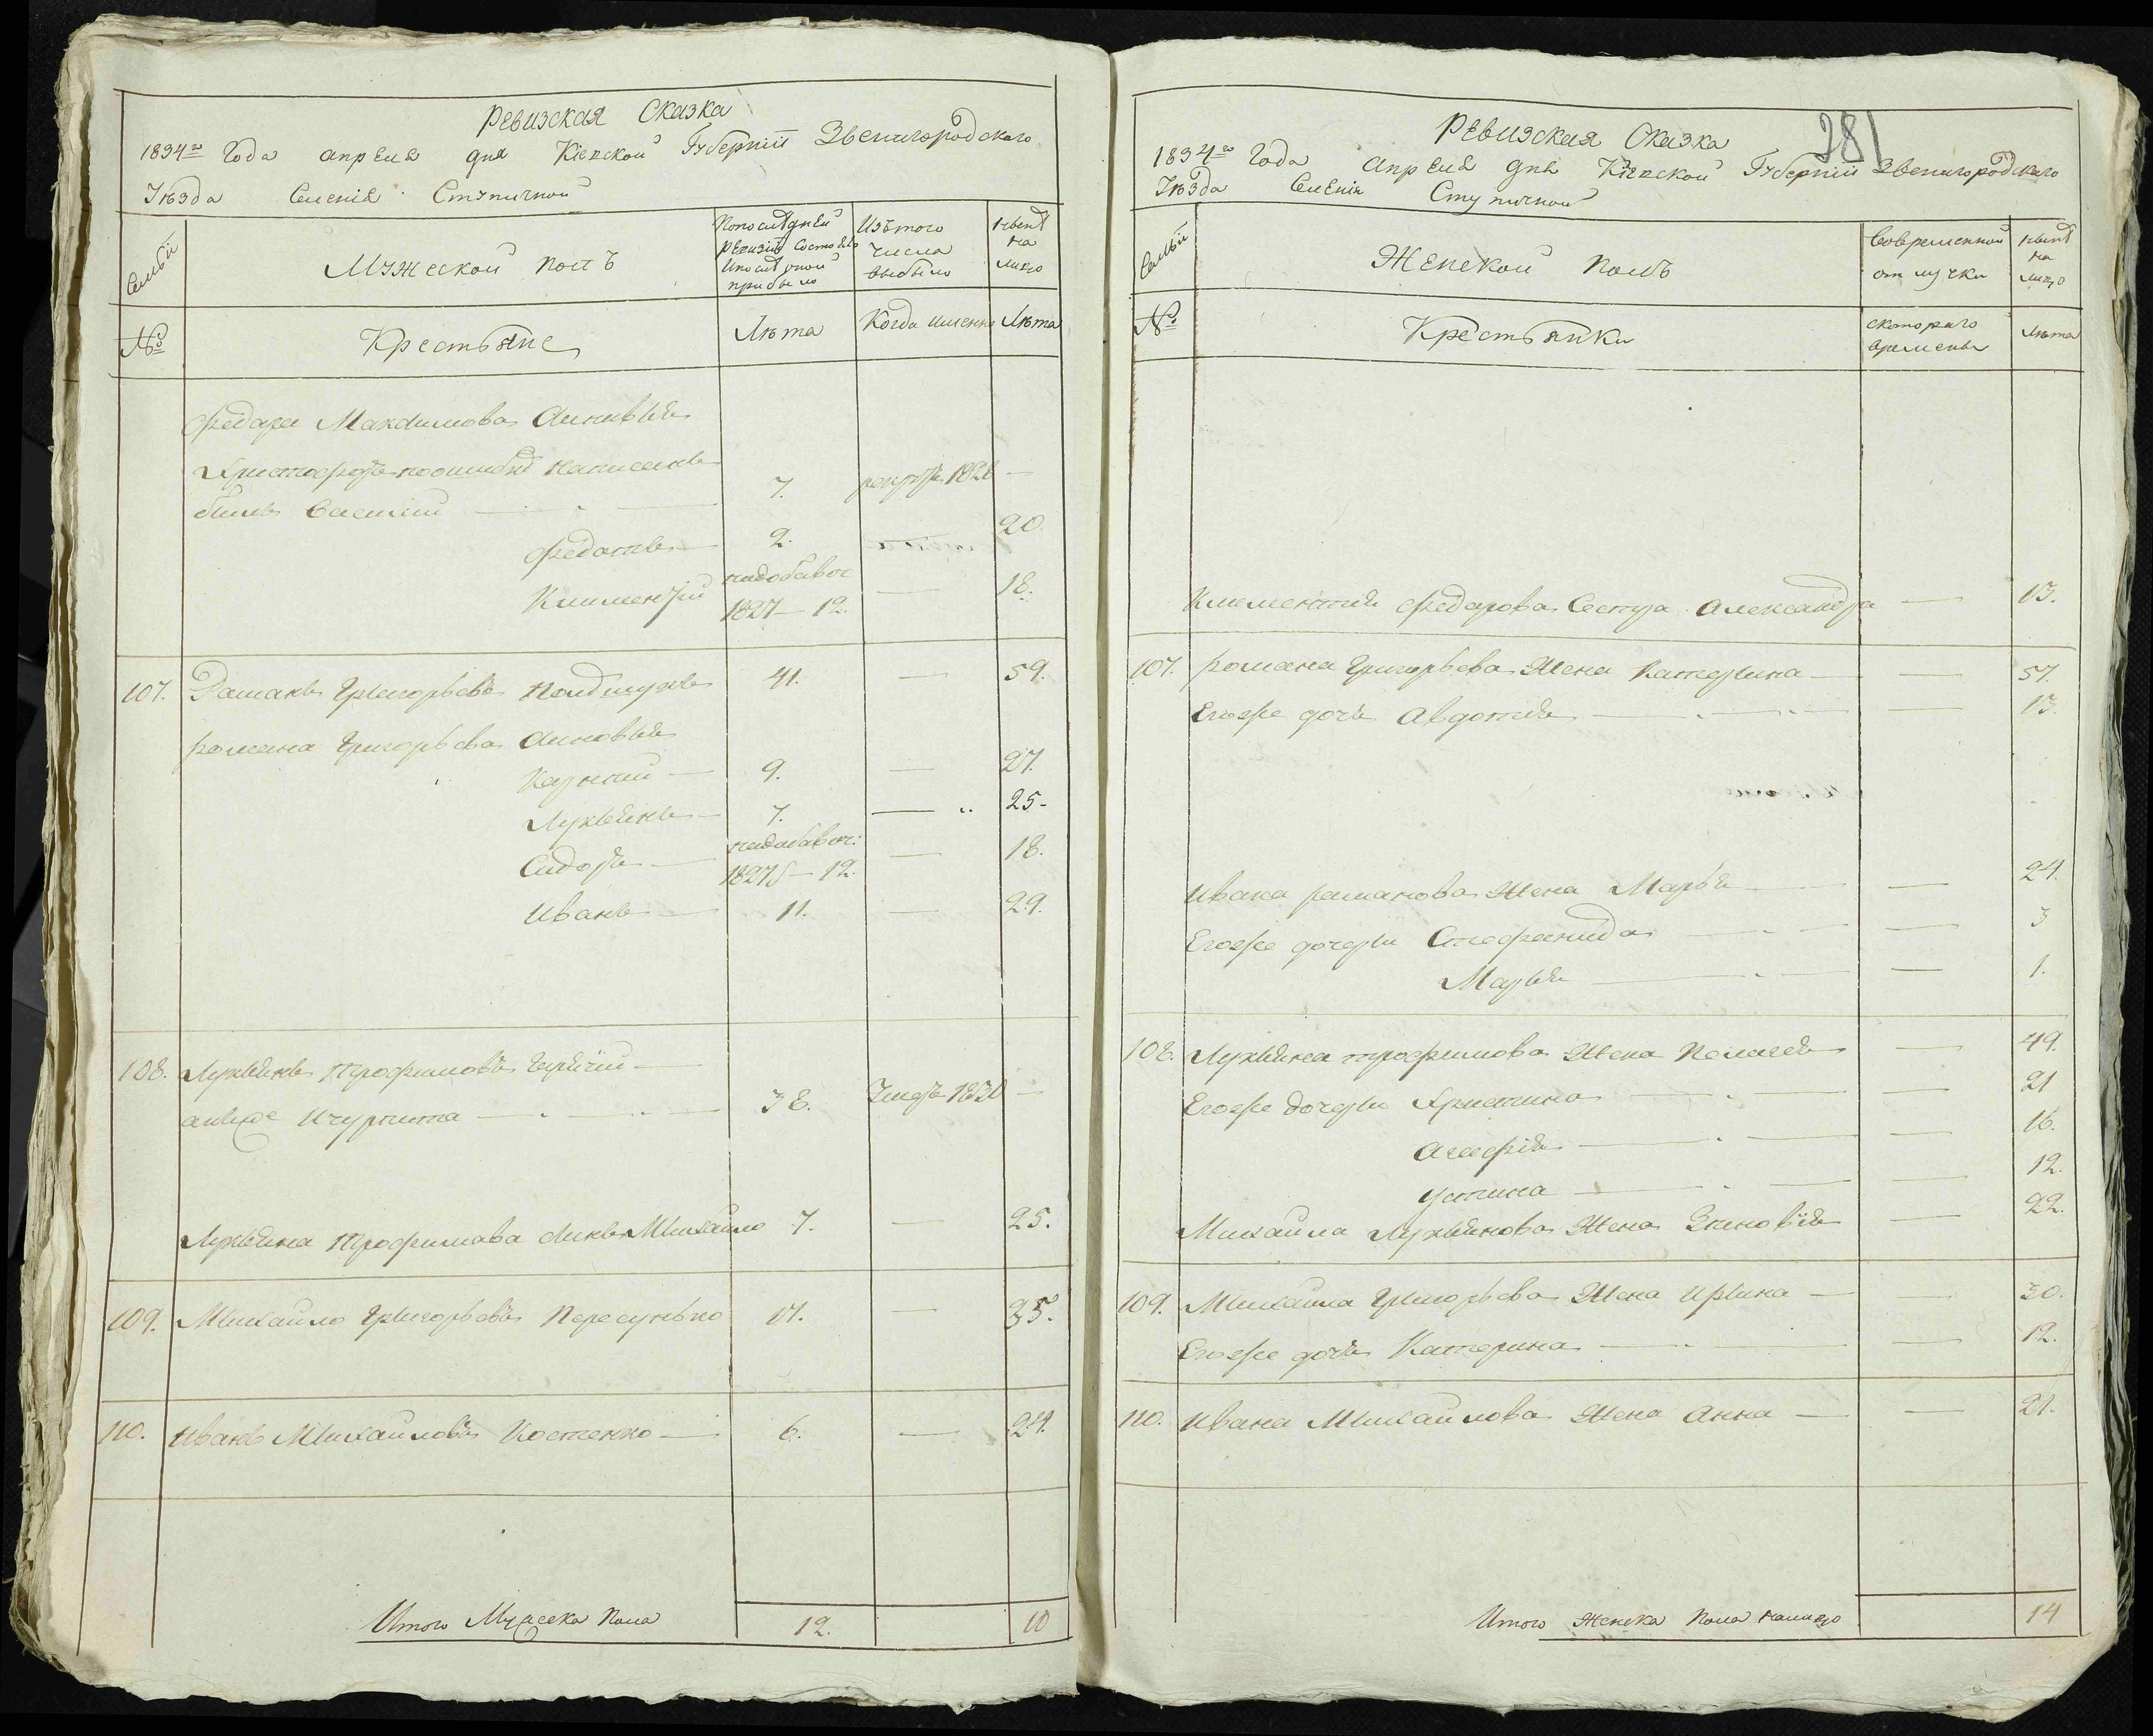 Ревизская Сказка
1834го Года апреля дня Кіевской Губерніи Звенигородского
Уѣзда Селенія Ступичной
Семьи
Мужеской полъ
По последней ревизіи состояло и после оной прибыло
Изъ того числа выбыло
Ныне на лицо
№
Крестьяне
Лѣта
Когда именно
Лѣта
Федора Максимова сыновья
Христофоръ поошибке написанъ 7. рекрутъ 1828 —
былъ Василий
Федотъ — 2. 20.
Климентрий надобавоч 1827 — 12. — 18.
107. Раманъ Григорьевъ 41. — 59.
романа Григорьева сыновья
Карпий — 9. — 27.
Лукьянъ — 7. — 25-
Сидоръ — надабавоч: 1827 — 12. — 18.
Иванъ — 11. — 29.
108. Лукьянъ трофимовъ —
онъже 38. Умеръ 1830 —
Лукьяна трофимава сынъ Михайло 7. — 25.
109. Михайло Григорьевъ Пересунько 17. — 35.
110. Иванъ Михайловъ Костенко — 6. — 24.
Итого Мужеска Пола 12. 10
281
Ревизская Сказка
1834го Года апреля дня Кіевской Губерніи Звенигородского
Уѣзда Селенія Ступичной
Семьи
Женской полъ
Во временной отлучки
Ныне на лицо
№
Крестьянки
с котораго времены
Лѣта
Климентия Федарова Сестра Александра — 13.
107. романа Григорьева Жена Катерина — 57.
Егоже дочь Авдотия — 13.
Ивана раманова Жена Марья — 24.
Егоже дочери Стефанида — 3
Марья — 1.
108. Лукьяна трофимова Жена Пелагея — 49.
Егоже дочери Христина — 21
Агафія — 16.
Устина — 12.
Михайла Лукьянова Жена Зиновія — 22.
109. Михайла Григорьева Жена Ирина — 30.
Егоже дочь Катерина — 12.
110. Ивана Михайлова Жена Анна — 21.
Итого Женска Пола налицо 14